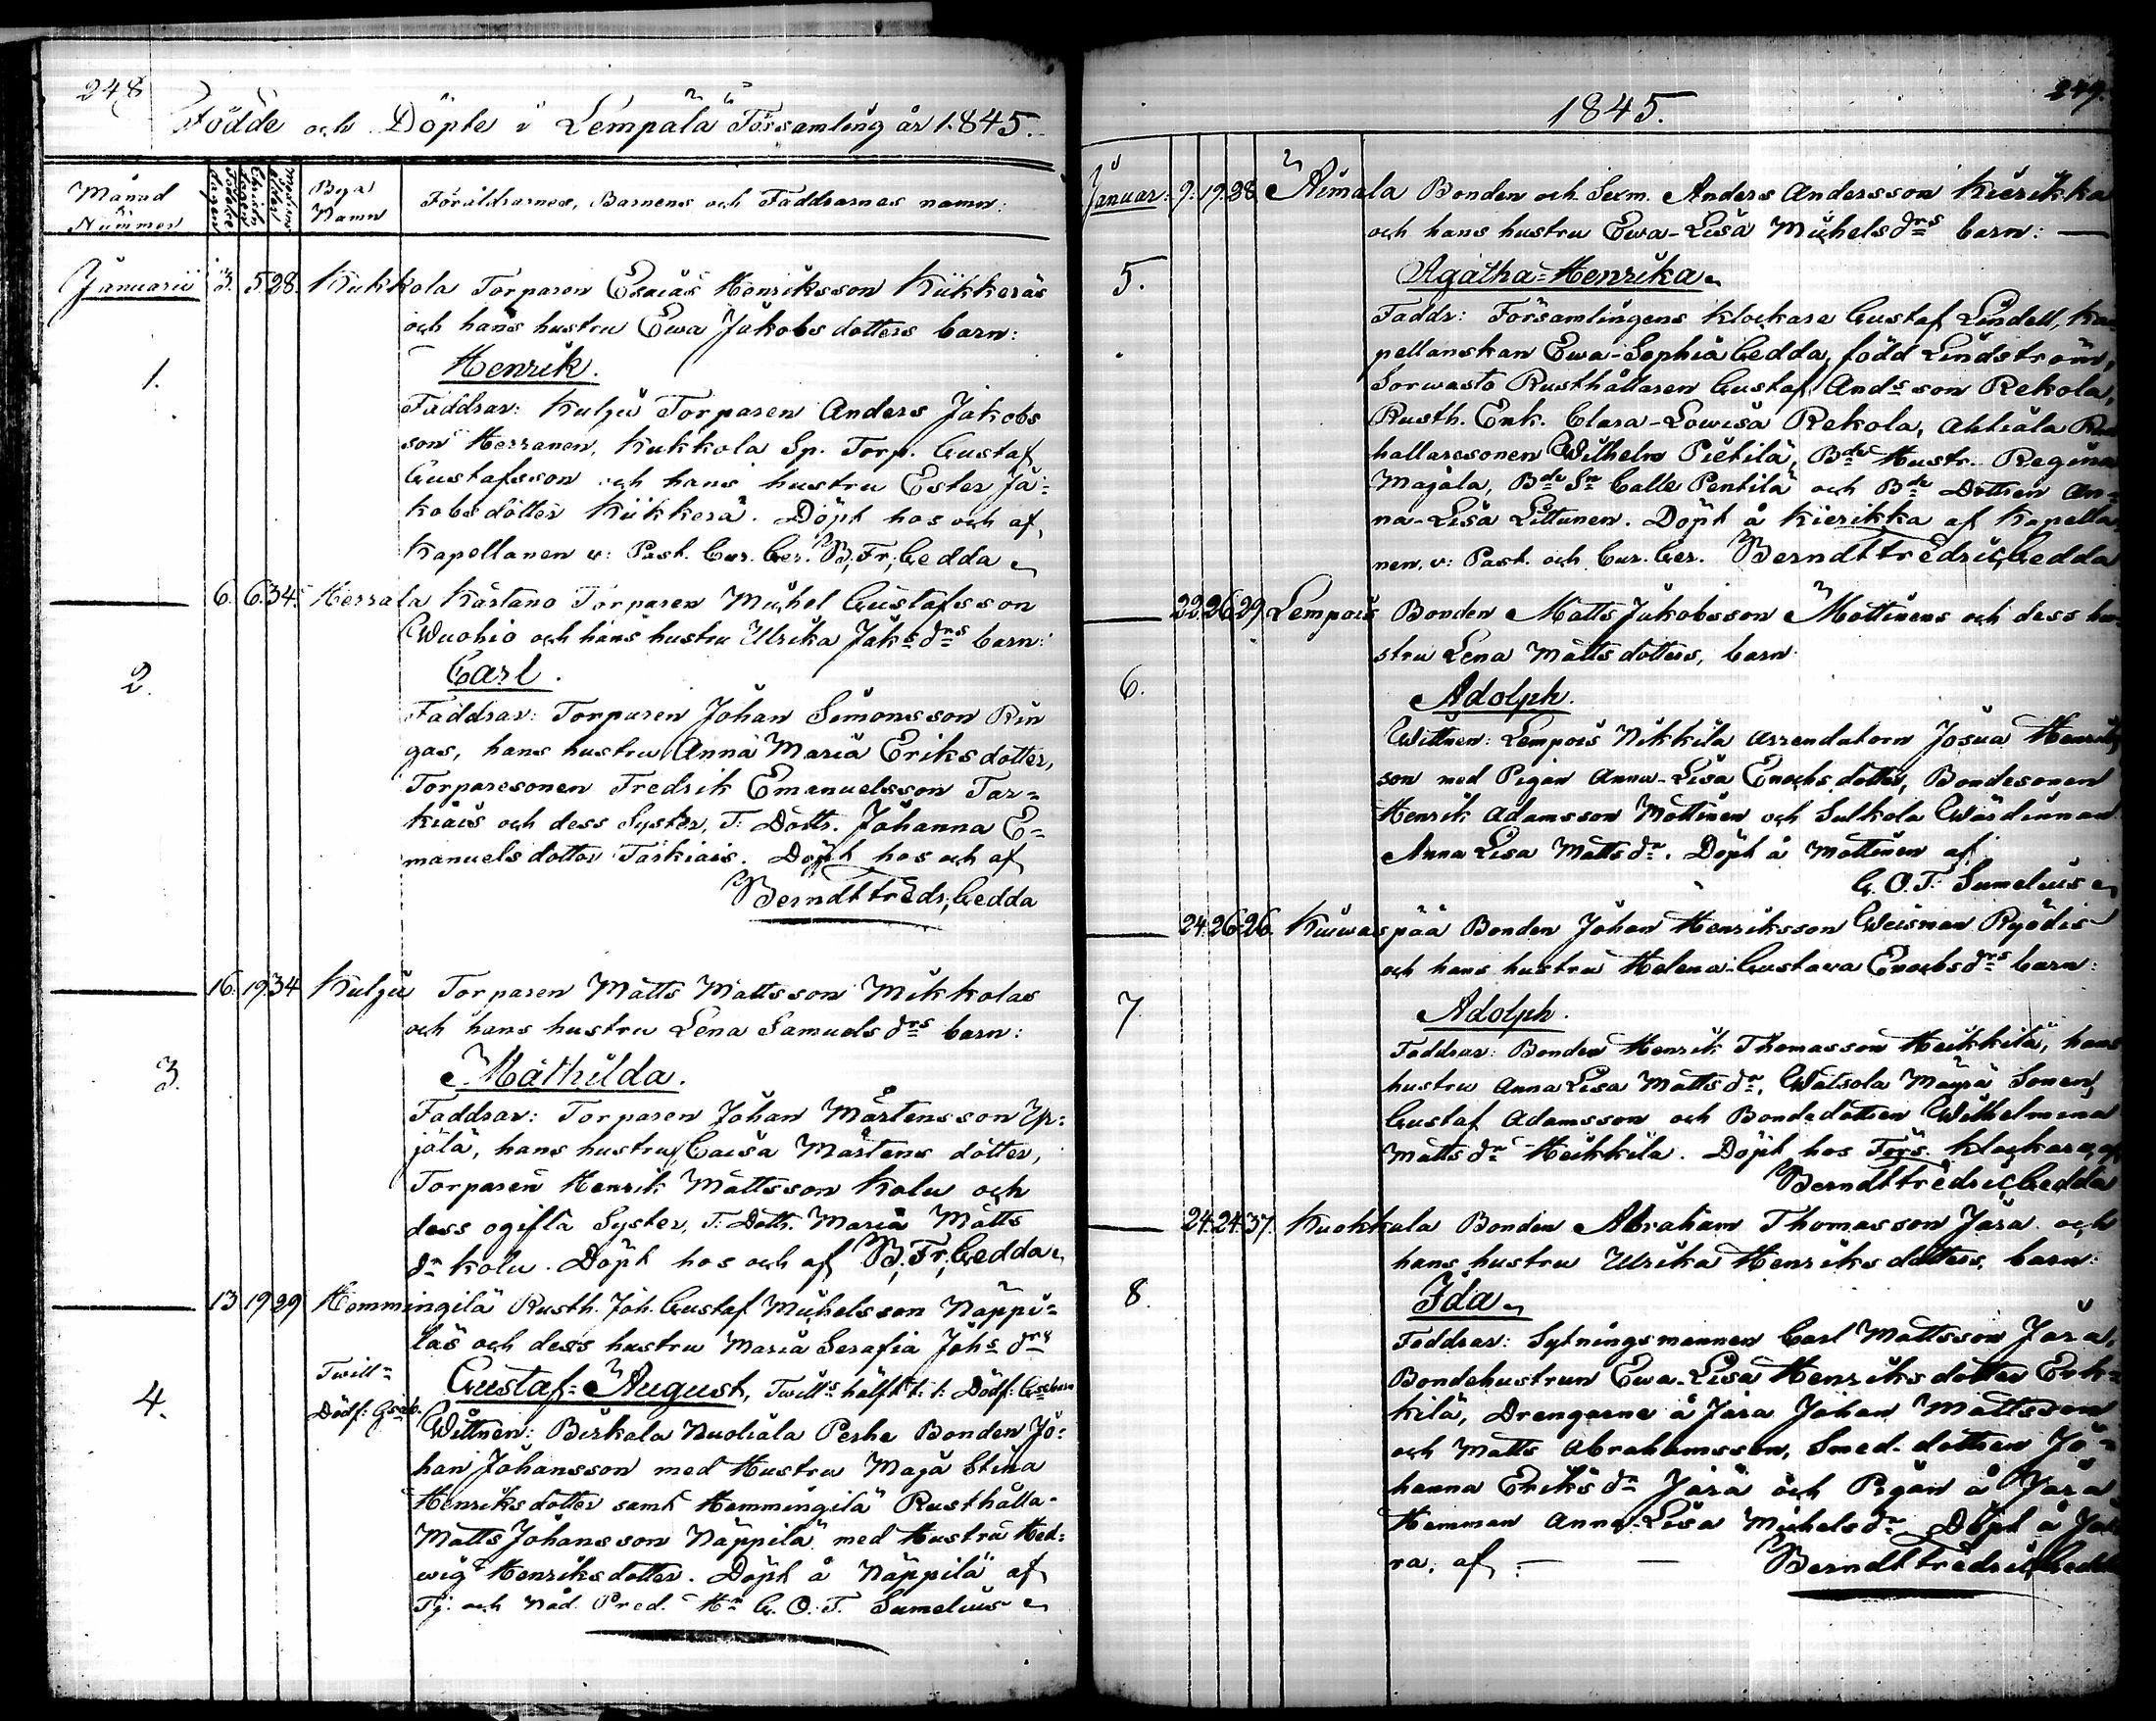 248
Födde och Döpte i Lempäla Församling år 1845.
Månad
Nummer
Födelse
dagen
Christn
dagen
Modrens
ålder
Bya
Namn
Föräldrarnes, Barnens och Faddrarnes namn:
Januarii 3. 5. 28. Kukkola Torparen Esaias Henriksson Kükkeräs
och hans hustru Ewa Jakobs dotters barn:
Henrik.
1.
Faddrar: Kuljü Torparen Anders Jakobs
son Herranen, Kukkola Sp. Torp. Gustaf
Gustafsson och hans hustru Ester Ja=
kobsdotter Kükkerä. Döpt hos och af
Kapellanen v: Past. Cur. Ger. B. Fr. Gedda
6. 6. 34. Herrala Kärtano Torparen Michel Gustafsson
Wuohio och hans hustru Ulrika Jaks drs barn:
Carl.
2.
Faddrar: Torparen Johan Simonsson Rin
gas, hans hustru Anna Maria Eriksdotter,
Torparesonen Fredrik Emanuelsson Tar=
kiais och dess Syster, T: Dottr. Johanna E=
manuelsdotter Tarkiais. Döpt hos och af
Berndt Fredr. Gedda
16. 19. 34 Kuljü Torparen Matts Mattsson Mikkolas
och hans hustru Lena Samuels drs barn:
Mathilda.
3.
Faddrar: Torparen Johan Mårtensson Yr=
jölä, hans hustru Caisa Mårtens dotter,
Torparen Henrik Mattsson Kolu och
dess ogifta Syster, T. Dottr. Maria Matts
dr Kolu. Döpt hos och af B. Fr. Gedda
13 19 29 Hemmingilä Rusth. Joh. Gustaf Michelsson Näppi=
läs och dess hustru Maria Serafia Johs drs
Twill=
Gustaf=August, Twills hälft t: t: Dödf:
4.
Dödf:
Wittnen: Birkala Nuoliala Perhe Bonden Jo=
han Johansson med Hustru Maja Stina
Henriksdotter samt Hemmingilä Rusthålla-
Matts Johansson Näppilä med Hustru Hed=
wig Henriksdotter. Döpt å Näppilä af
Tj. och Nåd. Pred. Hr G. O. T. Sumelius
249.
1845.
Januar: 9. 19. 28. Aimala Bonden och Sexm. Anders Andersson Kierikka
och hans hustru Ewa-Lisa Michels drs barn:
5.
Agatha=Henrika
Faddr: Församlingens Klockare Gustaf Lindell, Ka=
pellanskan Ewa-Sophia Gedda, född Lindström,
Sorwasto Rusthållaren Gustaf Ands son Rekola,
Rusth. Enk. Clara-Lowisa Rekola, Ahtiala Rust
hallaresonen Wilhelm Pietilä, Bde Hustr. Regina
Majala, Bde Sn Calle Pentilä och Bde Dottren An=
na-Lisa Littunen. Döpt å Kierikka af Kapella
nen, v: Past. och Cur. Ger. Berndt Fredric Gedda
22 26 29 Lempois Bonden Matts Jakobsson Mottinens och dess hu-
stru Lena Mattsdotters, barn
6.
Adolph.
Wittnen: Lempois Nikkila Arrendatorn Josua Henriks
son med Pigan Anna-Lisa Enochsdotter, Bondesonen
Henrik Adamsson Mottinen och Sulkola Wärdinnan
Anna Lisa Matts dr. Döpt å Mottinen af
G. O. T. Sumelius
24. 26. 26. Kuiwaspää Bonden Johan Henriksson Weisman Ryödis
och hans hustru Helena-Gustava Enochs drs barn:
7.
Adolph.
Faddrar: Bonden Henrik Thomasson Heikkilä, hans
hustru Anna Lisa Matts dr, Watsola Mäyrä Sonen
Gustaf Adamsson och Bondedottren Wilhelmina
Matts dr Heikkilä. Döpt hos Förs. Klockare, af
Berndt Fredric Gedda
24. 24. 37. Kuokkala Bonden Abraham Thomasson Jära och
hans hustru Ulrika Henriksdotters, barn:
8.
Ida
Faddrar: Sytningsmannen Carl Mattsson Jära,
Bondehustrun Ewa-Lisa Henriksdotter Erk=
kilä, Drengarne å Jära Johan Mattsson
och Matts Abrahamsson, Smed-dottren Jo=
hanna Eriks dr Jära och Pigan å Jära
Hemman Anna-Lisa Michels dr. Döpt å Jä
ra, af: Berndt Fredric Gedda